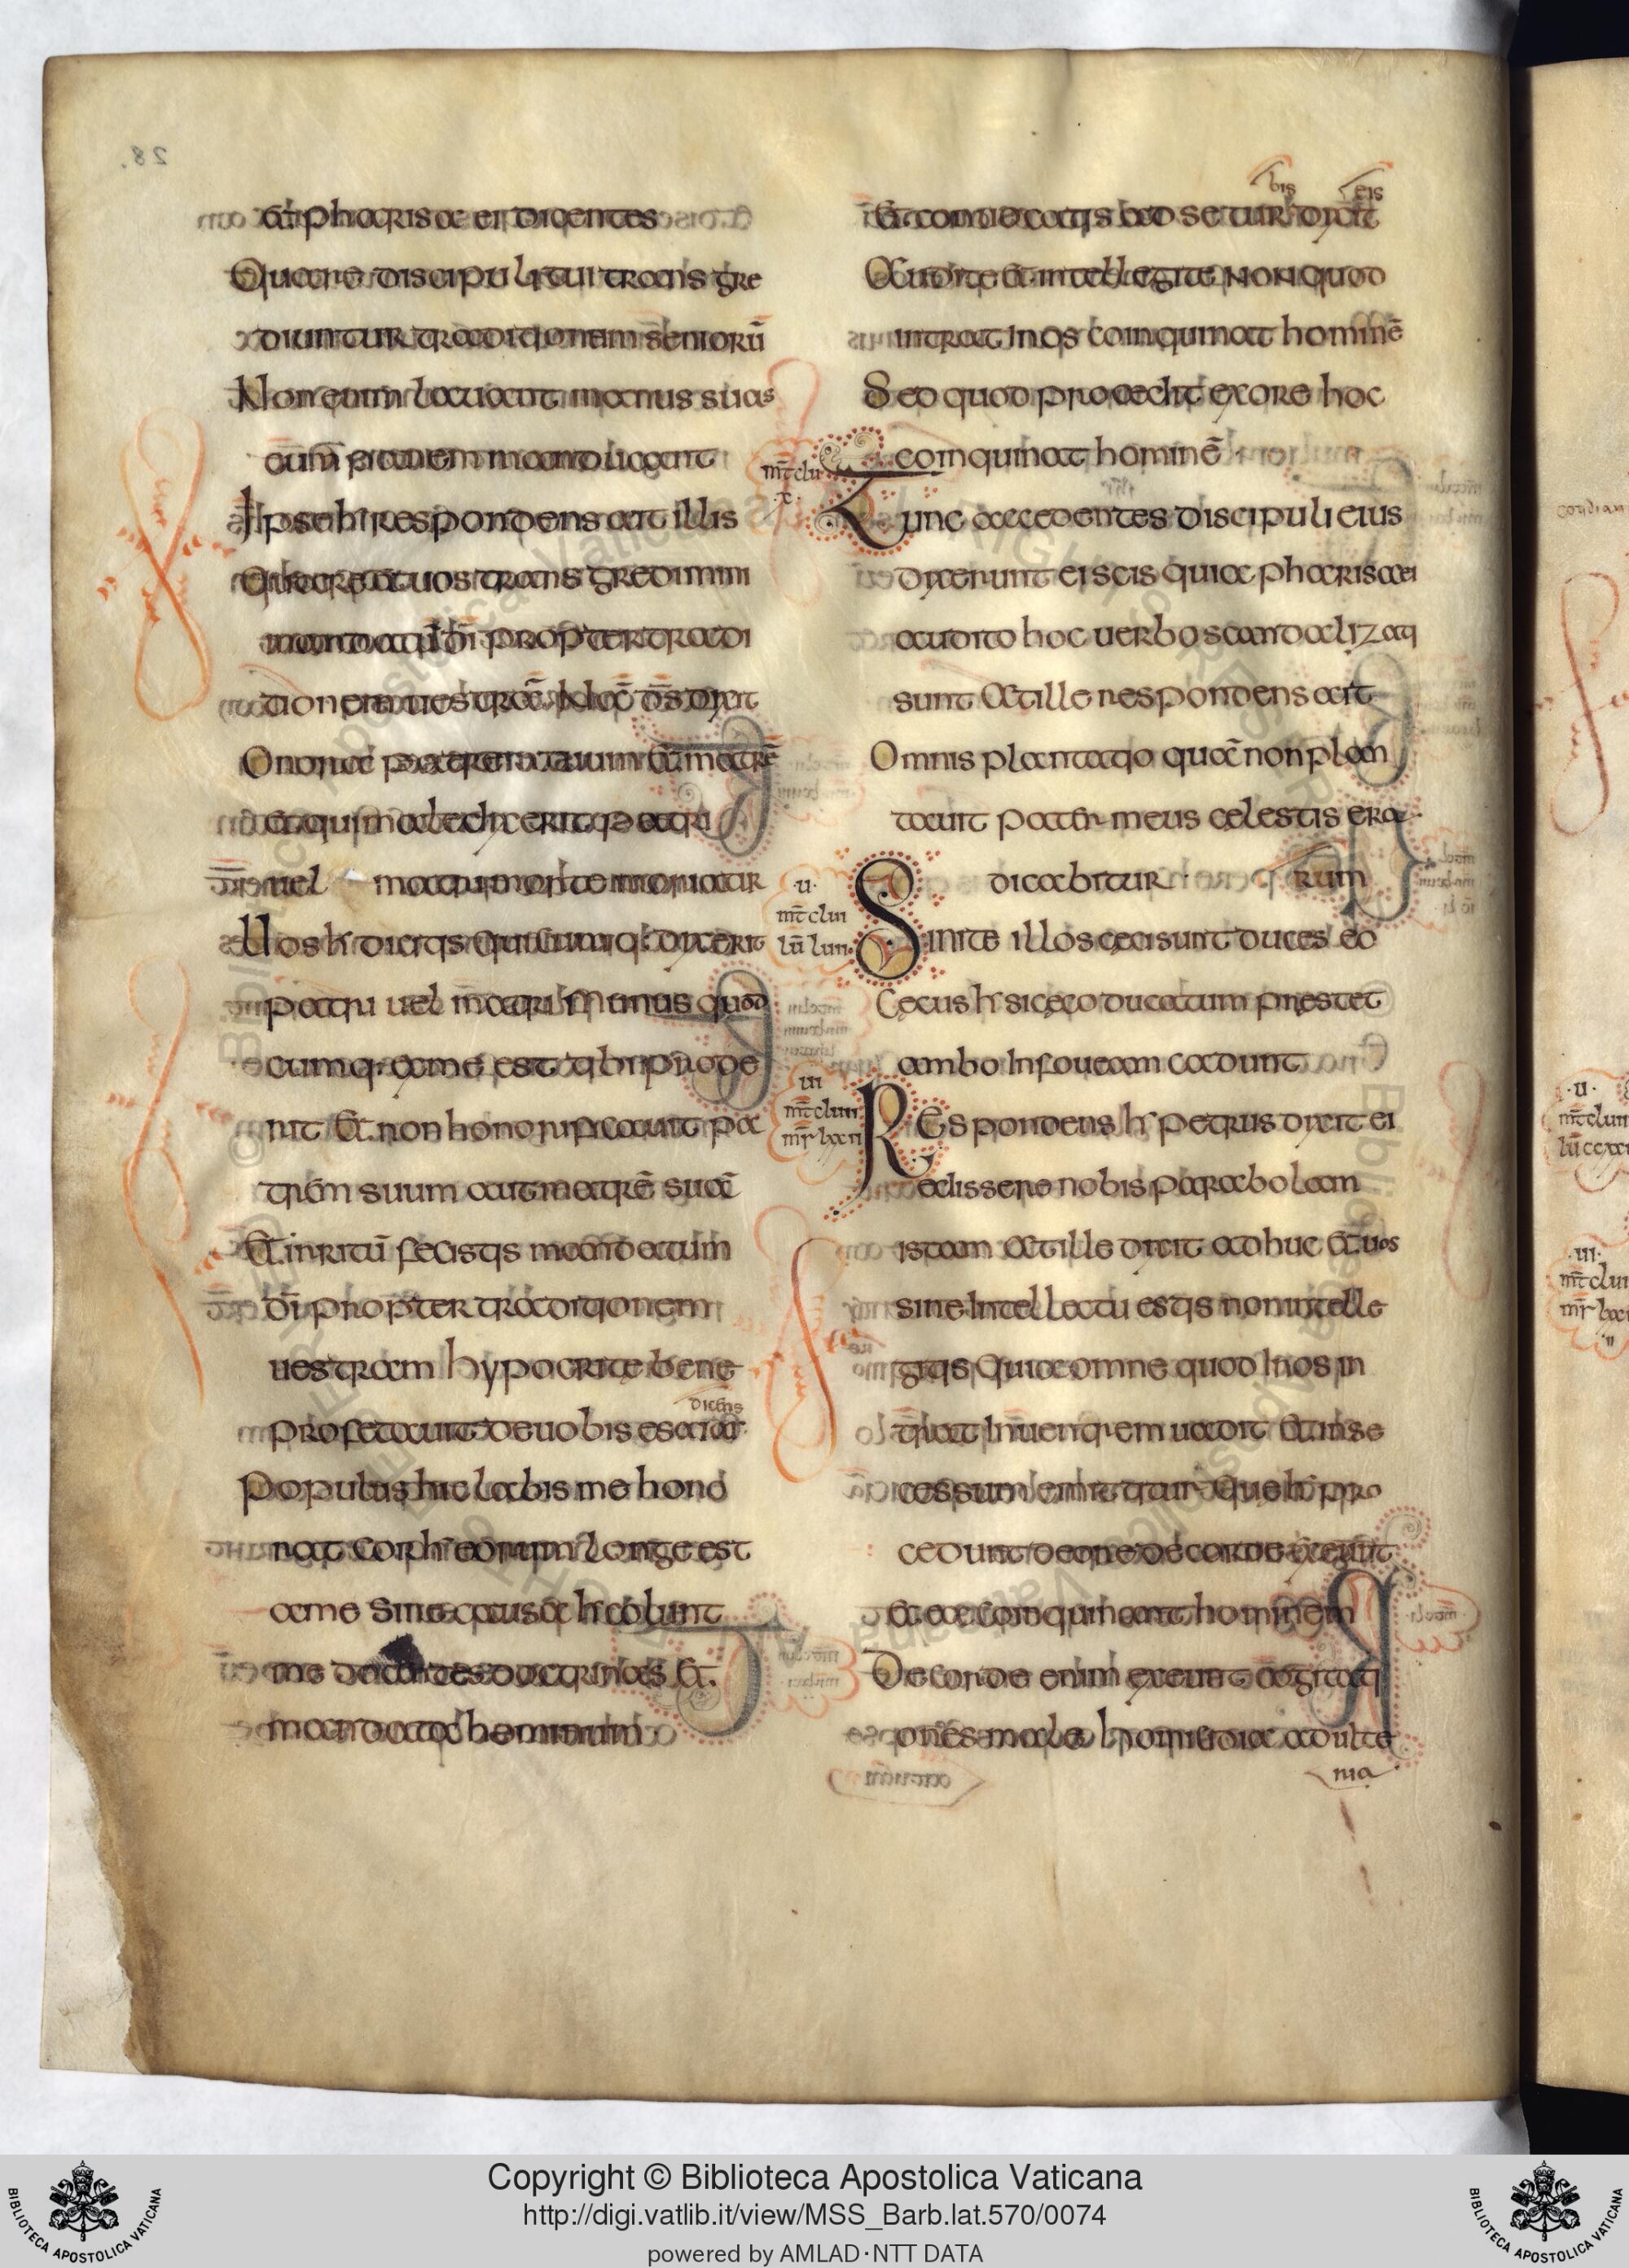 & pharisæ ei dicentes
Quare discipuli tui trans gre
diuntur traditionem seniorū
Non enim lauant manus suas
cum panem manducant
Ipse hr respondens ait illis
Quare & uos trans gredimini
mandatū dī propter tradi
tionem uestrā Nā dś dixit
Honora patrem tuum & matrē
& qui maledixerit patri
uel matri morte moriatur
Uos hr dicitis Quicumq: dixerit
patri uel matri Munus quod
cumq: ex me est tibi prode
rit & non honorificauit pa
trem suum aut matrē suā
& inritū fecistis mandatum
dī propter traditionem
uestram hypocritæ bene
dicens
profetauit de uobis esaias
Populus hic labis me hono
rat Cor hr eorum longe est
a me Sine causa hr colunt
me docentes doctrinas &
mandata hominum
bis eis
& conuocatis ad se turdixit
Audite & intellegite Non quod
intrat in os coinquinat hominē
Sed quod procedit ex ore hoc
coinquinat hominē
m̄t clu
x
Tunc accedentes discipuli eius
dixerunt ei scis quia pharisaei
audito hoc uerbo scandalizati
sunt At ille respondens ait
Omnis plantatio quā non plan
tauit pater meus celestis era
dicabitur rum
u
m̄t clui
lū lui
Sinite illos ceci sunt duces eo
Cecus hr si ceco ducatum prestet
ambo in foueam cadunt
iii
m̄t cluii
m̄r lxxii
Respondens hr petrus dixit ei
edissere nobis parabolam
istam At ille dixit adhuc & uos
sine intellectu estis non intelle
gitis Quia omne quod in os in
trat in uentrem uadit & in se
cessum emittitur Que hr pro
cedunt de ore de corde exeunt
& ea coinquinant hominem
De corde enim exeunt cogitati
ones male homicidia adulte
ria
Copyright © Biblioteca Apostolica Vaticana
http://digi.vatlib.it/view/MSS_Barb.lat.570/0074
powered by AMLAD·NTT DATA
BIBLIOTECA APOSTOLICA VATICANA
BIBLIOTECA APOSTOLICA VATICANA